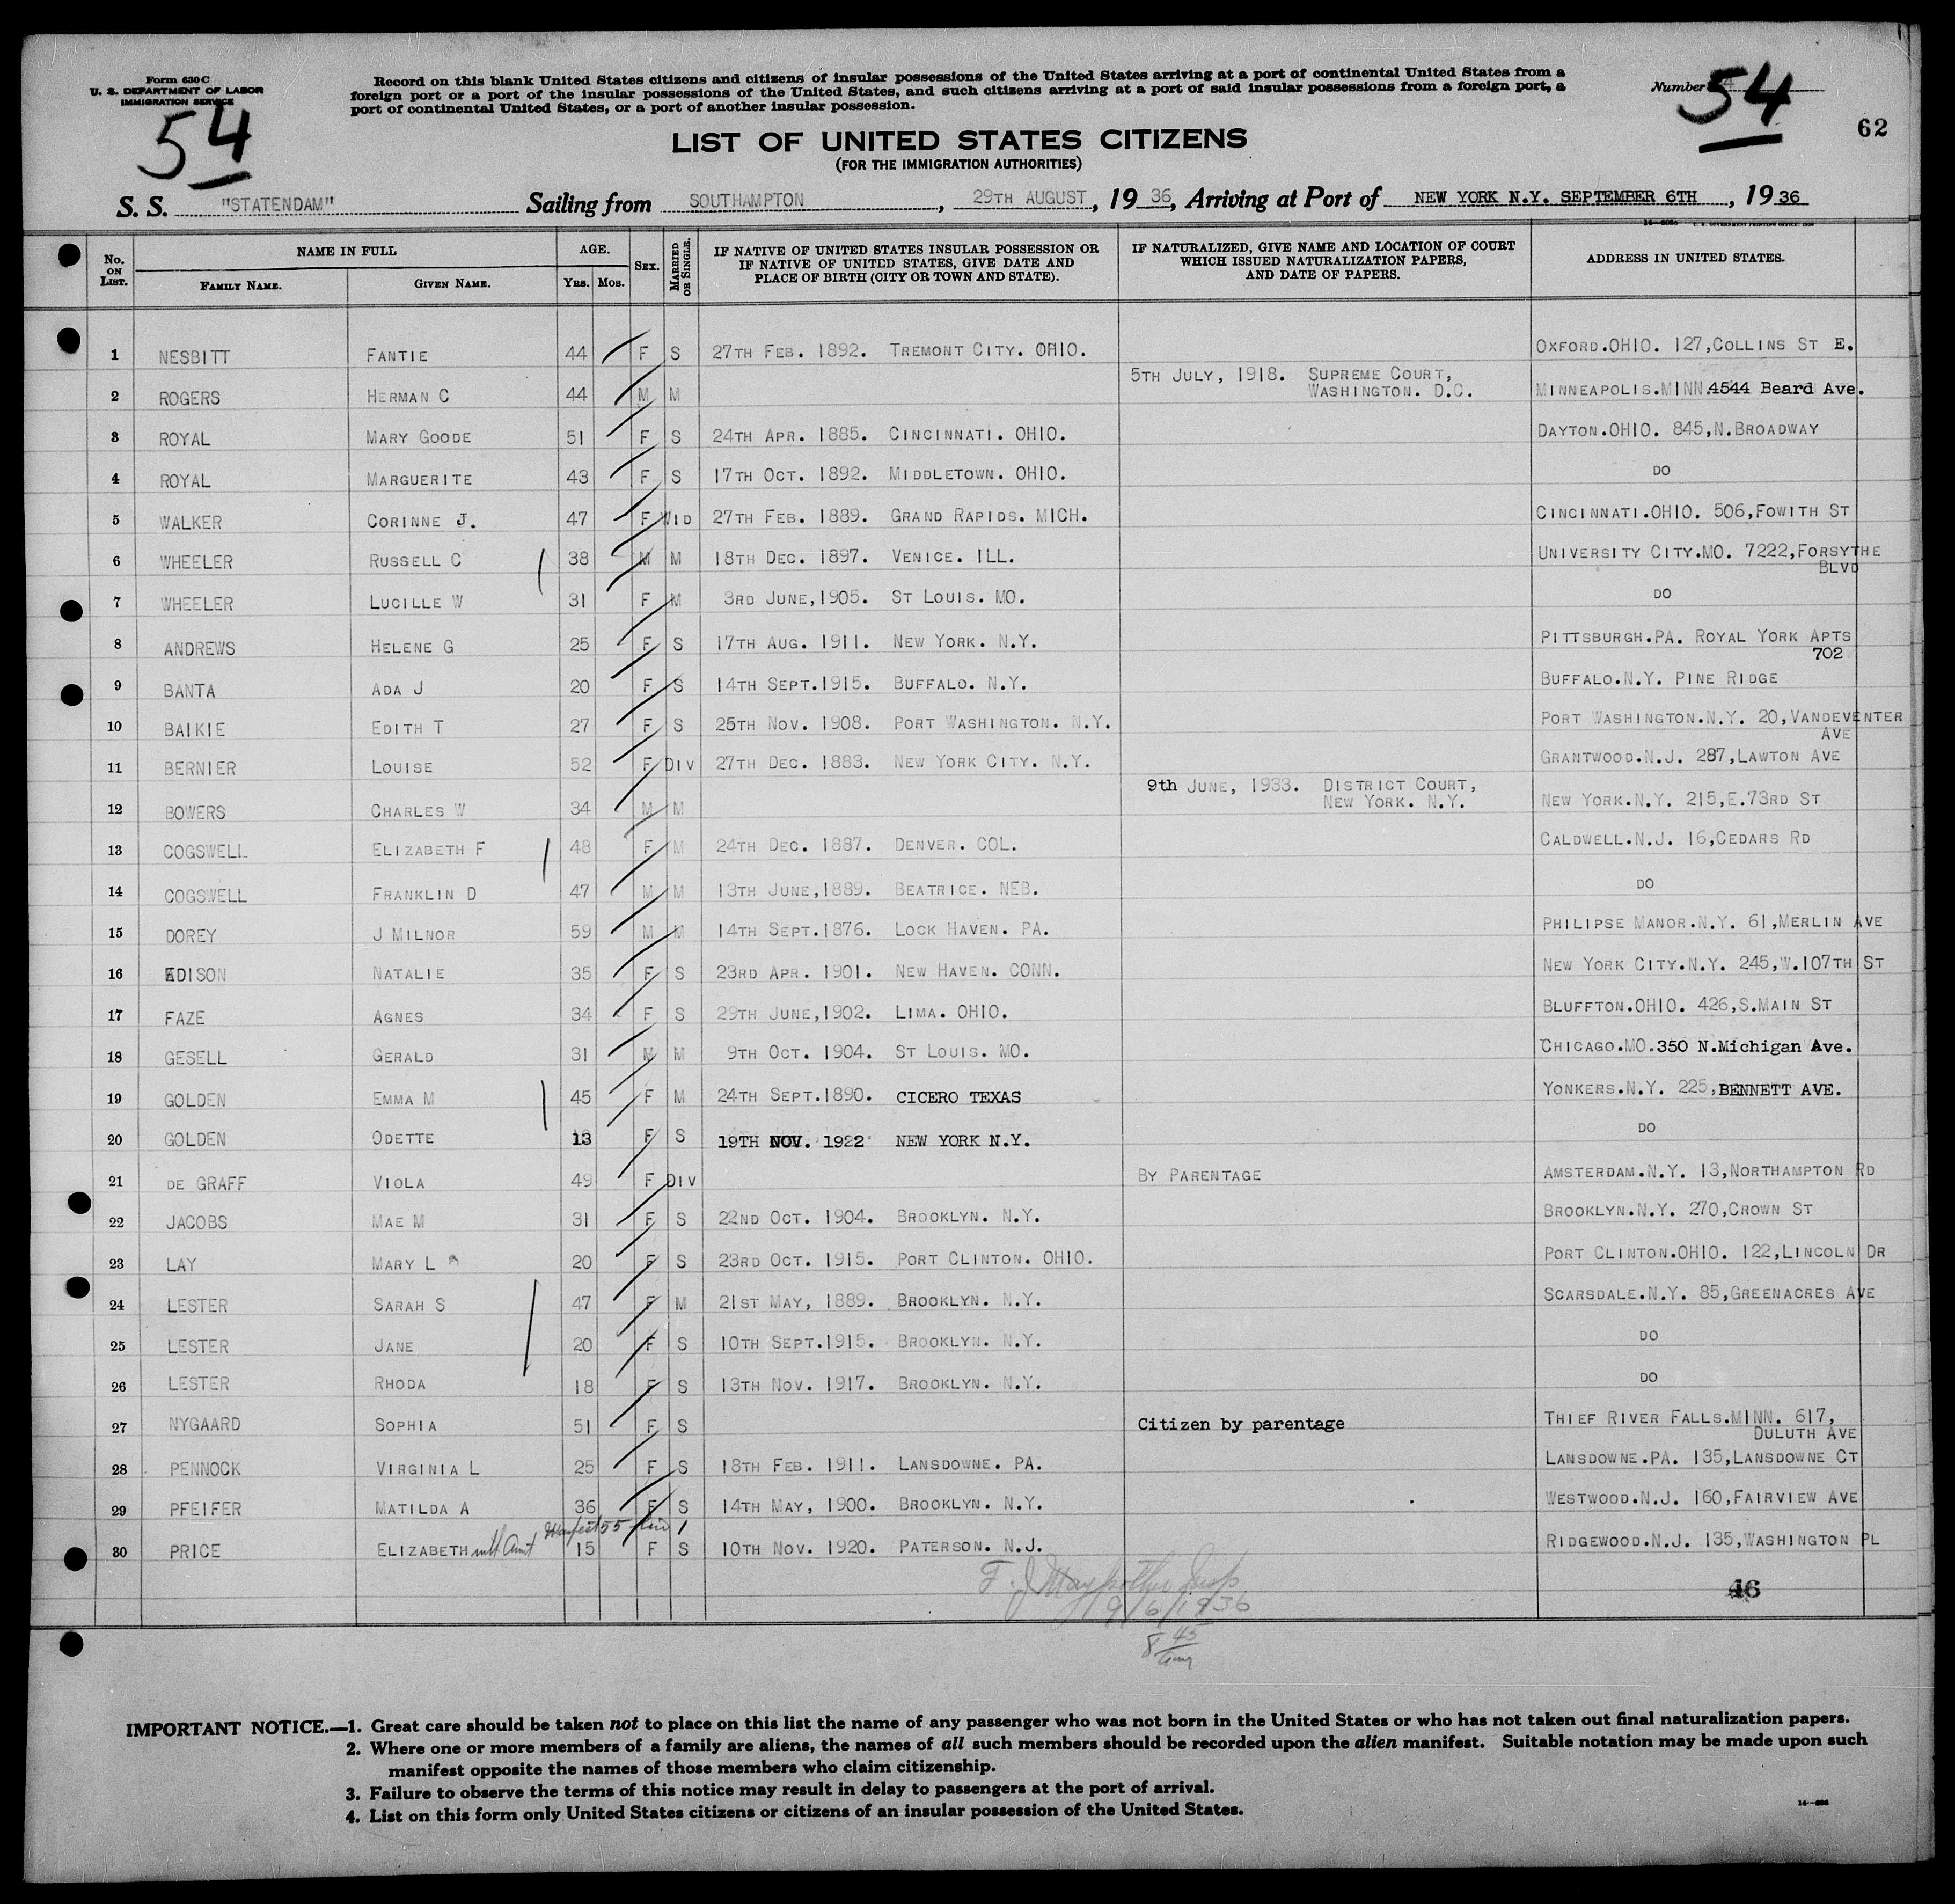 Form 630 C
U. S. DEPARTMENT OF LABOR
IMMIGRATION SERVICE
54
Record on this blank United States citizens and citizens of insular possessions of the United States arriving at a port of continental United States from a
foreign port or a port of the insular possessions of the United States, and such citizens arriving at a port of said insular possessions from a foreign port, a
port of continental United States, or a port of another insular possession.
Number 54
62
LIST OF UNITED STATES CITIZENS
(FOR THE IMMIGRATION AUTHORITIES)
S. S. "STATENDAM" Sailing from SOUTHAMPTON, 29TH AUGUST, 19 36, Arriving at Port of NEW YORK N.Y. SEPTEMBER 6TH, 19 36
No. ON LIST. NAME IN FULL FAMILY NAME. GIVEN NAME. AGE. YRS. MOS. SEX. MARRIED OR SINGLE. IF NATIVE OF UNITED STATES INSULAR POSSESSION OR IF NATIVE OF UNITED STATES, GIVE DATE AND PLACE OF BIRTH (CITY OR TOWN AND STATE). IF NATURALIZED, GIVE NAME AND LOCATION OF COURT WHICH ISSUED NATURALIZATION PAPERS, AND DATE OF PAPERS. ADDRESS IN UNITED STATES.
1 NESBITT FANTIE 44 F S 27TH FEB. 1892. TREMONT CITY. OHIO. OXFORD.OHIO. 127,COLLINS ST E.
2 ROGERS HERMAN C 44 M M 5TH JULY, 1918. SUPREME COURT, WASHINGTON. D.C. MINNEAPOLIS.MINN.4544 Beard Ave.
3 ROYAL MARY GOODE 51 F S 24TH APR. 1885. CINCINNATI. OHIO. DAYTON.OHIO. 845,N.BROADWAY
4 ROYAL MARGUERITE 43 F S 17TH OCT. 1892. MIDDLETOWN. OHIO. DO
5 WALKER CORINNE J. 47 F WID 27TH FEB. 1889. GRAND RAPIDS. MICH. CINCINNATI.OHIO. 506,FOWITH ST
6 WHEELER RUSSELL C 38 M M 18TH DEC. 1897. VENICE. ILL. UNIVERSITY CITY.MO. 7222,FORSYTHE BLVD
7 WHEELER LUCILLE W 31 F M 3RD JUNE,1905. ST LOUIS. MO. DO
8 ANDREWS HELENE G 25 F S 17TH AUG. 1911. NEW YORK. N.Y. PITTSBURGH.PA. ROYAL YORK APTS 702
9 BANTA ADA J 20 F S 14TH SEPT.1915. BUFFALO. N.Y. BUFFALO.N.Y. PINE RIDGE
10 BAIKIE EDITH T 27 F S 25TH NOV. 1908. PORT WASHINGTON. N.Y. PORT WASHINGTON.N.Y. 20,VANDEVENTER AVE
11 BERNIER LOUISE 52 F DIV 27TH DEC. 1883. NEW YORK CITY. N.Y. GRANTWOOD.N.J. 287,LAWTON AVE
12 BOWERS CHARLES W 34 M M 9th JUNE, 1933. DISTRICT COURT, NEW YORK. N.Y. NEW YORK.N.Y. 215,E.73RD ST
13 COGSWELL ELIZABETH F 48 F M 24TH DEC. 1887. DENVER. COL. CALDWELL.N.J. 16,CEDARS RD
14 COGSWELL FRANKLIN D 47 M M 13TH JUNE,1889. BEATRICE. NEB. DO
15 DOREY J MILNOR 59 M M 14TH SEPT.1876. LOCK HAVEN. PA. PHILIPSE MANOR.N.Y. 61,MERLIN AVE
16 EDISON NATALIE 35 F S 23RD APR. 1901. NEW HAVEN. CONN. NEW YORK CITY.N.Y. 245,W.107TH ST
17 FAZE AGNES 34 F S 29TH JUNE,1902. LIMA. OHIO. BLUFFTON.OHIO. 426,S.MAIN ST
18 GESELL GERALD 31 M M 9TH OCT. 1904. ST LOUIS. MO. CHICAGO.MO.350 N.Michigan Ave.
19 GOLDEN EMMA M 45 F M 24TH SEPT.1890. CICERO TEXAS YONKERS.N.Y. 225,BENNETT AVE.
20 GOLDEN ODETTE 13 F S 19TH NOV. 1922 NEW YORK N.Y. DO
21 DE GRAFF VIOLA 49 F DIV BY PARENTAGE AMSTERDAM.N.Y. 13,NORTHAMPTON RD
22 JACOBS MAE M 31 F S 22ND OCT. 1904. BROOKLYN. N.Y. BROOKLYN.N.Y. 270,CROWN ST
23 LAY MARY L 20 F S 23RD OCT. 1915. PORT CLINTON. OHIO. PORT CLINTON.OHIO. 122,LINCOLN DR
24 LESTER SARAH S 47 F M 21ST MAY, 1889. BROOKLYN. N.Y. SCARSDALE.N.Y. 85,GREENACRES AVE
25 LESTER JANE 20 F S 10TH SEPT.1915. BROOKLYN. N.Y. DO
26 LESTER RHODA 18 F S 13TH NOV. 1917. BROOKLYN. N.Y. DO
27 NYGAARD SOPHIA 51 F S Citizen by parentage THIEF RIVER FALLS.MINN. 617, DULUTH AVE
28 PENNOCK VIRGINIA L 25 F S 18TH FEB. 1911. LANSDOWNE. PA. LANSDOWNE.PA. 135,LANSDOWNE CT
29 PFEIFER MATILDA A 36 F S 14TH MAY, 1900. BROOKLYN. N.Y. WESTWOOD.N.J. 160,FAIRVIEW AVE
Manifest 55
30 PRICE ELIZABETH with Aunt 15 F S 10TH NOV. 1920. PATERSON. N.J. RIDGEWOOD.N.J. 135,WASHINGTON PL
46
9/6/1936
8 45
IMPORTANT NOTICE.—1. Great care should be taken not to place on this list the name of any passenger who was not born in the United States or who has not taken out final naturalization papers.
2. Where one or more members of a family are aliens, the names of all such members should be recorded upon the alien manifest. Suitable notation may be made upon such
manifest opposite the names of those members who claim citizenship.
3. Failure to observe the terms of this notice may result in delay to passengers at the port of arrival.
4. List on this form only United States citizens or citizens of an insular possession of the United States.